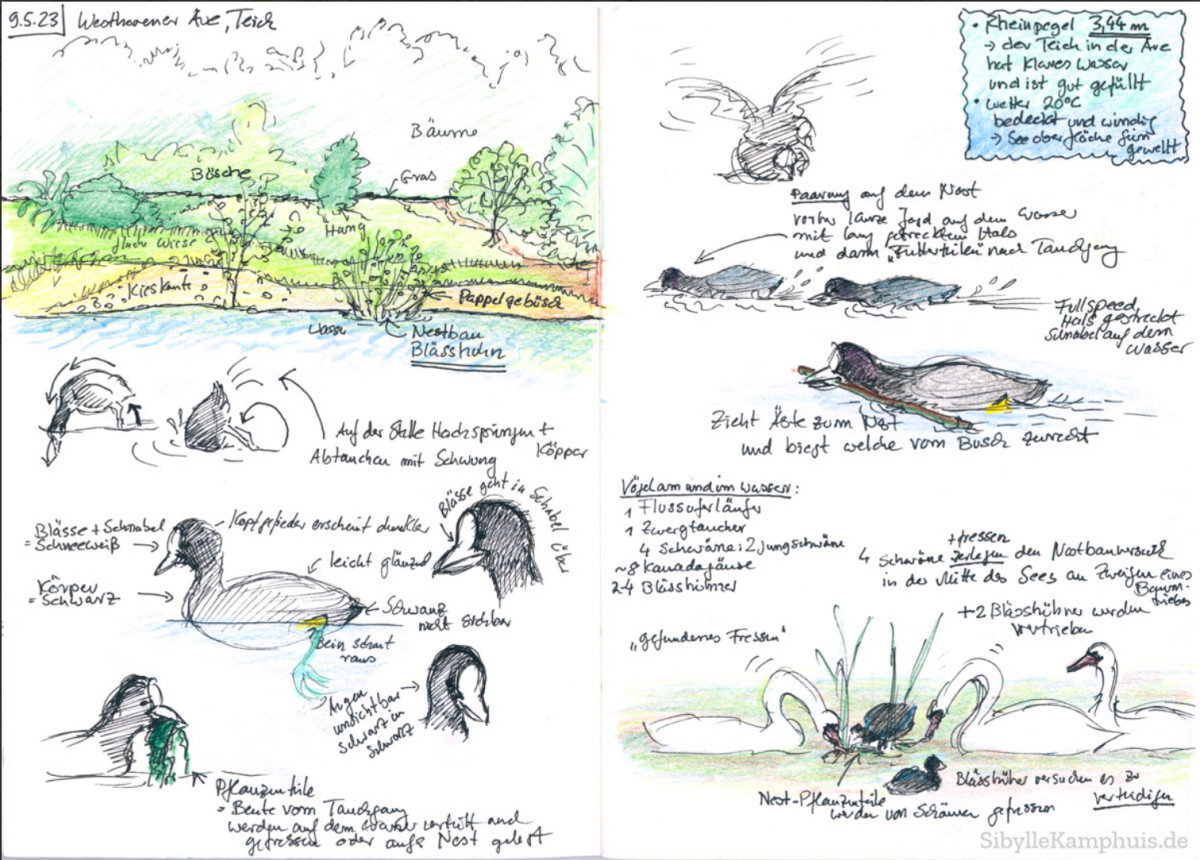 9.5.23 Westhovener Aue, Teich
Bäume
Büsche
Gras
Hang
Kieskante
Pappelgebüsch
Wasser
Nestbau
Blässhuhn
Auf der Stelle Hochsprünge +
Köpper
Abtauchen mit Schwung
Blässe geht in Schnabel über
Blässe + Schnabel
= Schneeweiß
Kopfgefieder erscheint dunkler
leicht glänzend
Körper
= Schwarz
Schwanz
nicht sichtbar
Bein schaut
raus
Augen
unsichtbar
Schwarz in
Schwarz
Pflanzenteile
= Beute vom Tauchgang
werden auf dem Wasser verteilt und
gefressen oder aufs Nest gelegt
• Rheinpegel 3,44 m
→ der Teich in der Aue
hat klares Wasser
und ist gut gefüllt
• Wetter 20°C
bedeckt und windig
→ Seeoberfläche
gewellt
Paarung auf dem Nest
vorher kurze Jagd auf dem Wasser
mit lang gestrecktem Hals
und dann „Futterteilen" nach Tauchgang
Fullspeed
Hals gestreckt
Schnabel auf dem
Wasser
Zieht Äste zum Nest
und biegt welche vom Busch zurecht
Vögel am und im Wasser:
1 Flussuferläufer
1 Zwergtaucher
4 Schwäne: 2 Jungschwäne
~8 Kanadagänse
2-4 Blässhühner
+ fressen
4 Schwäne zerlegen den Nestbauversuch
in der Mitte des Sees an Zweigen eines
Baum-
triebes
+ 2 Blässhühner werden
vertrieben
„gefundenes Fressen"
Blässhüher versuchen es zu
verteidigen
Nest-Pflanzenteile
werden von Schwänen gefressen
SibylleKamphuis.de